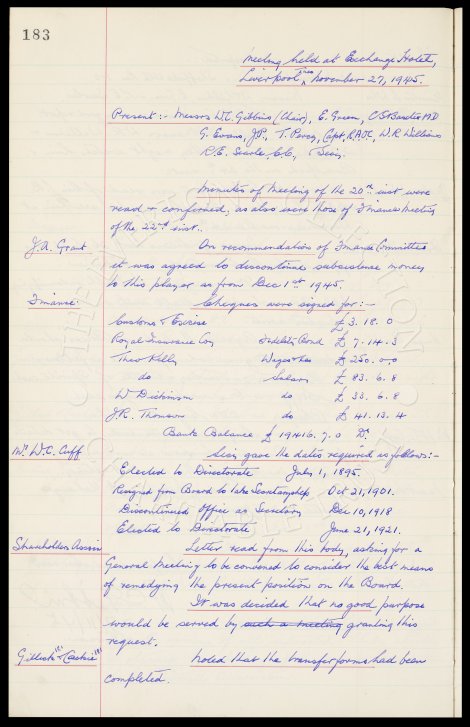 183
Meeting held at Exchange Hotel,
Liverpool, Tues November 27, 1945.
Present :- Messrs W.C. Gibbins (Chair), E. Green, C S Baxter MD
G. Evans, J.P., T. Percy, Capt. R.A.O.C, W.R. Williams
R.E. Searle, &c, Secy.
Minutes of Meeting of the 20th inst were
read & confirmed, as also were those of Finance Meeting
of the 22nd inst..
J.A. Grant
On recommendation of Finance Committee
it was agreed to discontinue subsistence money
to this player as from Dec 1st 1945.
Finance:
Cheques were signed for :-
Customs & Excise £ 3. 18. 0
Royal Insurance Coy Fidelity Bond £ 7. 14. 3
Theo Kelly Wages &c £ 250. 0. 0
do Salary £ 83. 6. 8
W Dickinson do £ 33. 6. 8
J.R. Thomson do £ 41. 13. 4
Bank Balance £ 19416. 7. 0 Dr.
Mr W.C. Cuff
Secy gave the dates required as follows :-
Elected to Directorate July 1, 1895.
Resigned from Board to take Secretaryship Oct 21, 1901.
Discontinued office as Secretary Dec 10, 1918
Elected to Directorate June 21, 1921.
Shareholders Assn
Letter read from this body, asking for a
General Meeting to be convened to consider the best means
of remedying the present position on the Board.
It was decided that no good purpose
would be served by such a meeting granting this
request.
Noted that the transfer forms had been
completed.